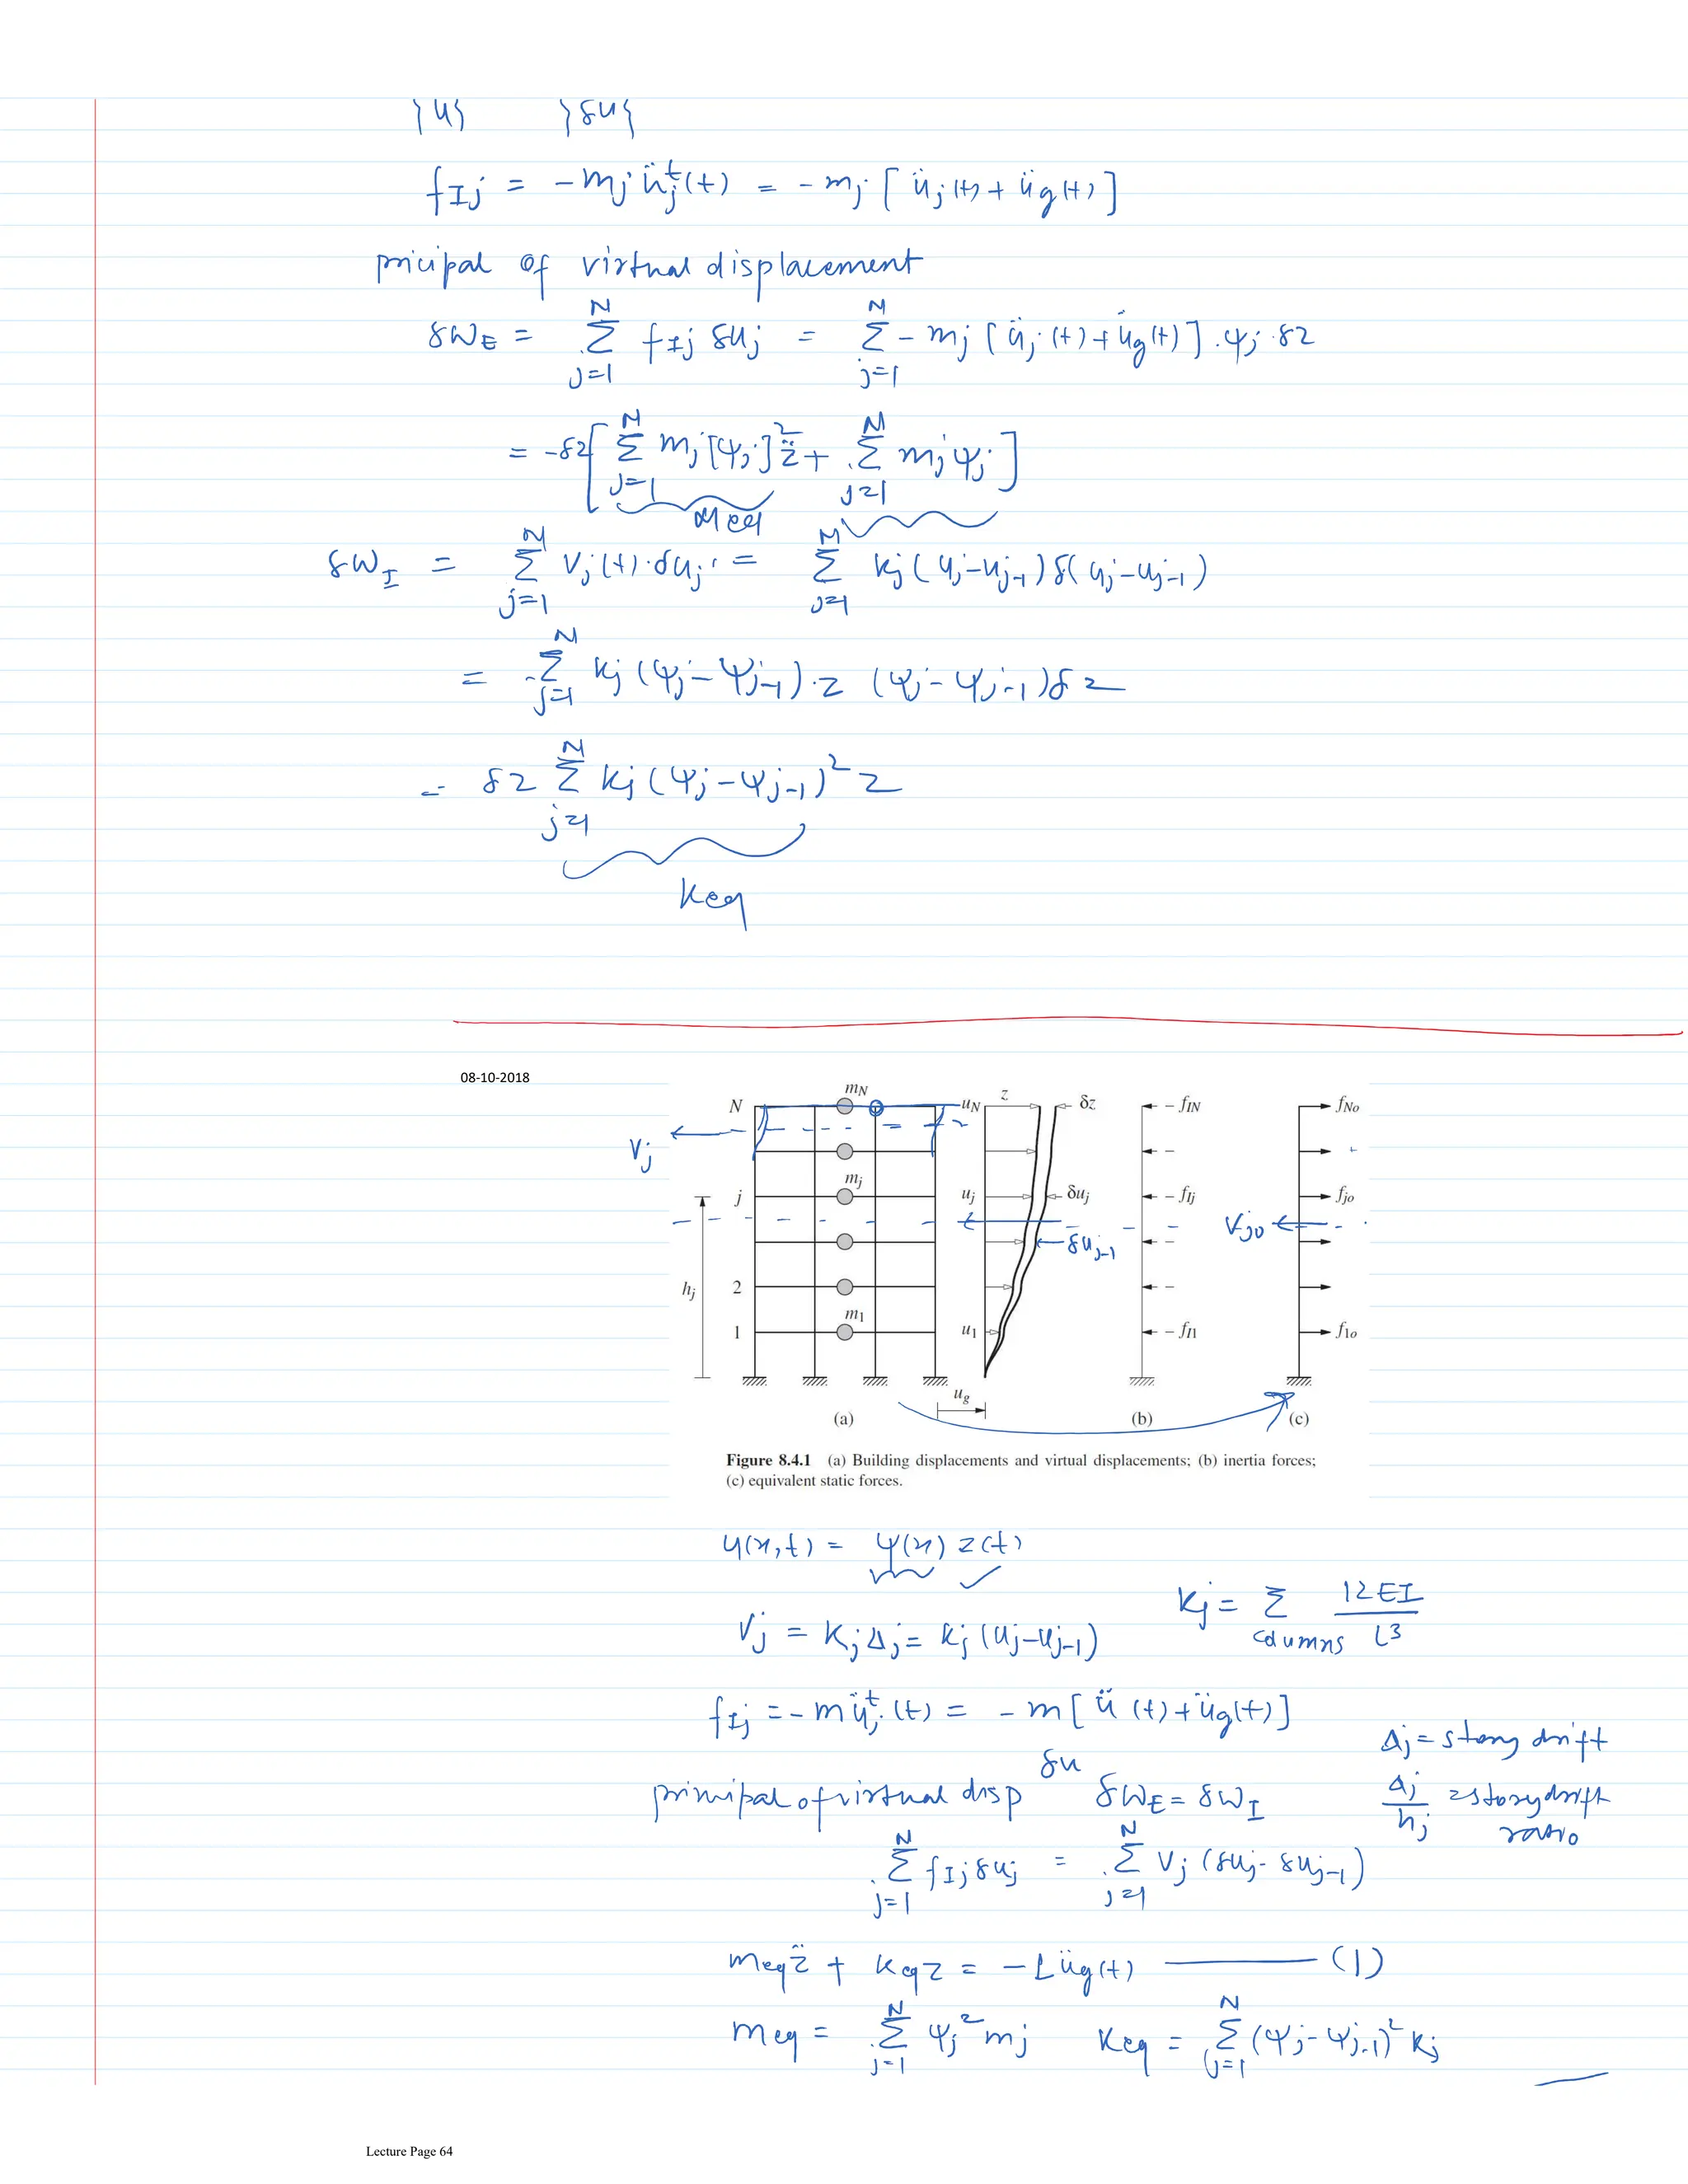 {u} {δu}
f_Ij = -m_j ü_j^t(t) = -m_j [ü_j(t) + ü_g(t)]
pricipal of virtual displacement
δW_E = Σ_{j=1}^{N} f_Ij δu_j = Σ_{j=1}^{N} -m_j [ü_j(t) + ü_g(t)] . ψ_j . δz
= -δz [Σ_{j=1}^{N} m_j [ψ_j]^2 z̈ + Σ_{j=1}^{N} m_j ψ_j]
Meq
δW_I = Σ_{j=1}^{N} V_j(t) . δu_j = Σ_{j=1}^{N} k_j (u_j - u_{j-1}) δ(u_j - u_{j-1})
= Σ_{j=1}^{N} k_j (ψ_j - ψ_{j-1}) . z (ψ_j - ψ_{j-1}) δz
= δz Σ_{j=1}^{N} k_j (ψ_j - ψ_{j-1})^2 z
Keq
08-10-2018
N m_N u_N z δz -f_IN f_No
V_j
j m_j u_j δu_j -f_Ij f_jo
δu_{j-1} V_jo
h_j 2
1 m_1 u_1 -f_I1 f_1o
u_g
(a) (b) (c)
Figure 8.4.1 (a) Building displacements and virtual displacements; (b) inertia forces;
(c) equivalent static forces.
u(x,t) = ψ(x) z(t)
k_j = Σ_{columns} 12EI / L^3
V_j = K_j Δ_j = k_j (u_j - u_{j-1})
f_Ij = -m ü_j^t(t) = -m [ü(t) + ü_g(t)]
Δ_j = story drift
δu
principal of virtual disp δW_E = δW_I
Δ_j / h_j = story drift ratio
Σ_{j=1}^{N} f_Ij δu_j = Σ_{j=1}^{N} V_j (δu_j - δu_{j-1})
m_eq z̈ + k_eq z = -L ü_g(t) (1)
m_eq = Σ_{j=1}^{N} ψ_j^2 m_j K_eq = Σ_{j=1}^{N} (ψ_j - ψ_{j-1})^2 k_j
Lecture Page 64